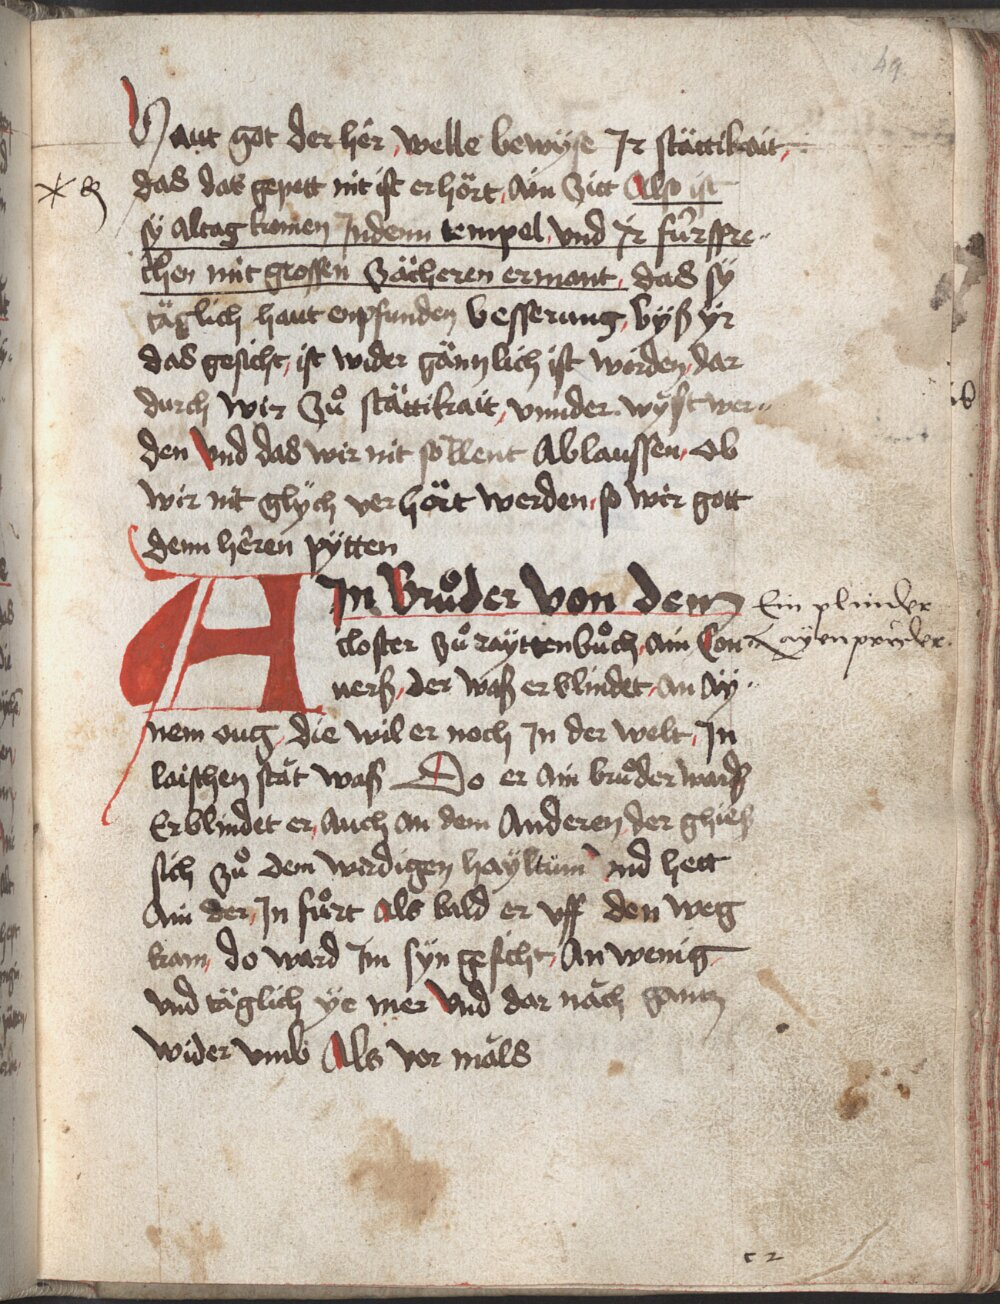 49
Haut got der hêr, welle bewÿse Ir stättikait,
das das gepett nit ist erhört, Ain Zitt Also ist
sÿ Altag komen Indenn tempel, vnd Ir fürspre-
chen mit grossen Zächeren ermant, das sÿ
täglich haut enpfunden besserung, bÿß ÿr
das gesicht, ist wider gännlich ist worden, dar
durch wir Zuͦ stättikait, vnnder wÿst wer-
den Vnd das wir nit söllent Ablaussen, ob
wir nit glÿch verhört werden, so wir gott
denn hêren pÿtten
AIn Bruͦder von dem
Ein plinder
closter zuͦ raÿttenbuͦch, Ain Con
Laÿenprüder
uerß, der waß erblindet, An Aÿ-
nem oug, die wil er noch In der welt, In
laischen stät waß Do er Ain bruͦder ward
Erblindet er, Auch An dem Anderen, der ghieß
sich zuͦ dem wirdigen haÿltum Vnd hett
Ain der, In fuͦrt Als bald er vff den weg
kam, do ward Im sÿn gesicht, An wenig
vnd täglich ÿe mer Vnd dar näch gantz
wider vmb Als vor mäls
52